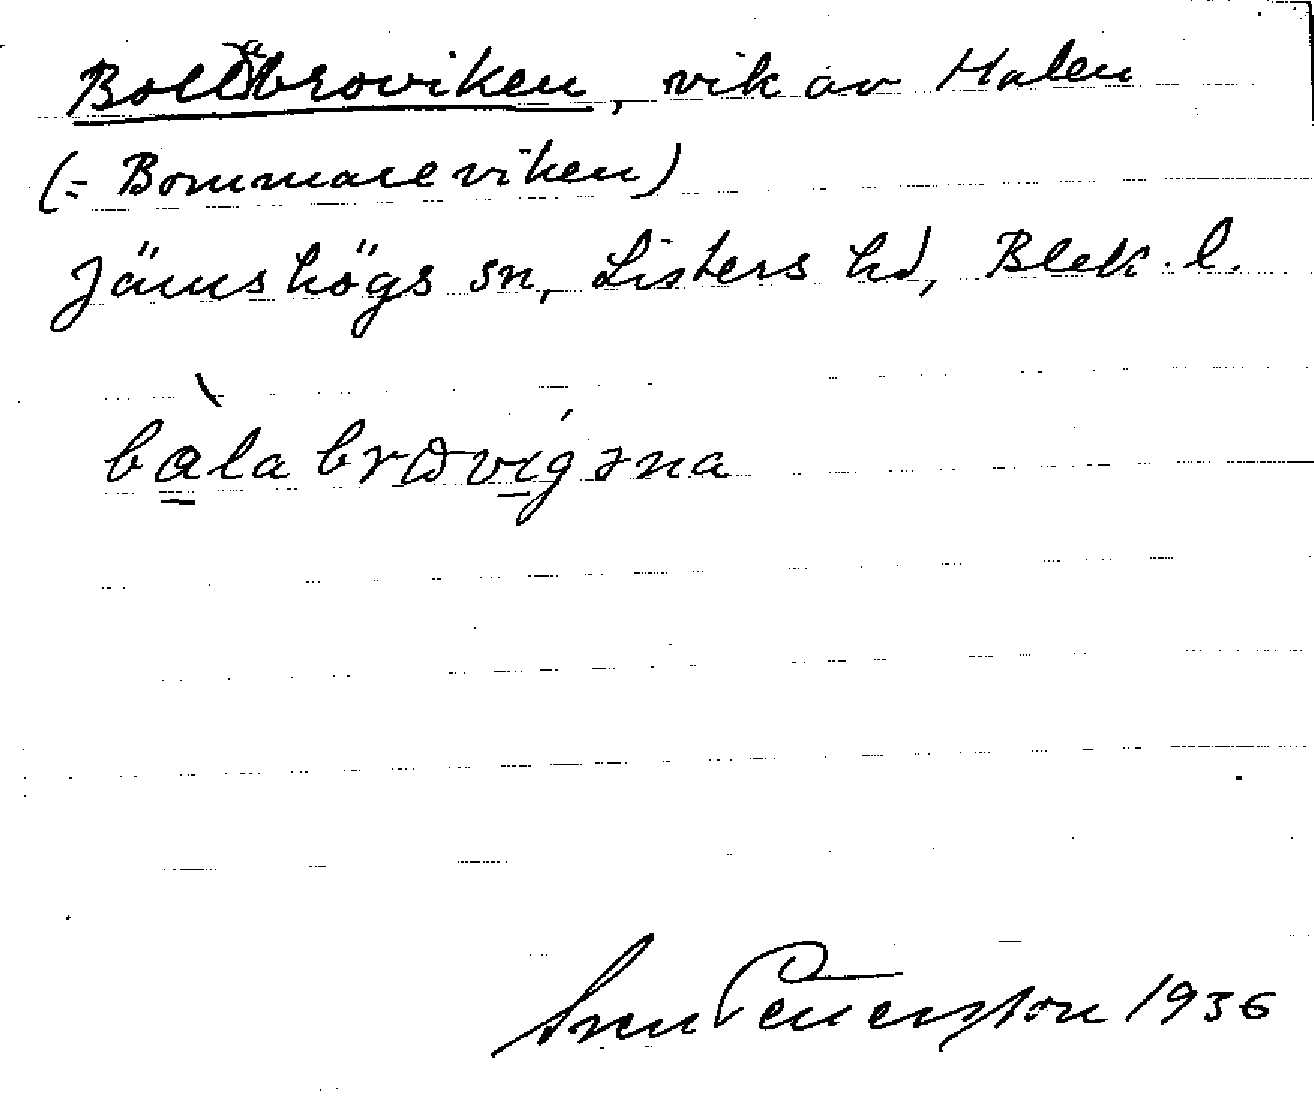 Bollabroviken, vik av Halen
(= Bommareviken)
Jämshögs sn, Listers hd, Blek. l.
bàlabrωvígəna
Sven Pettersson 1936